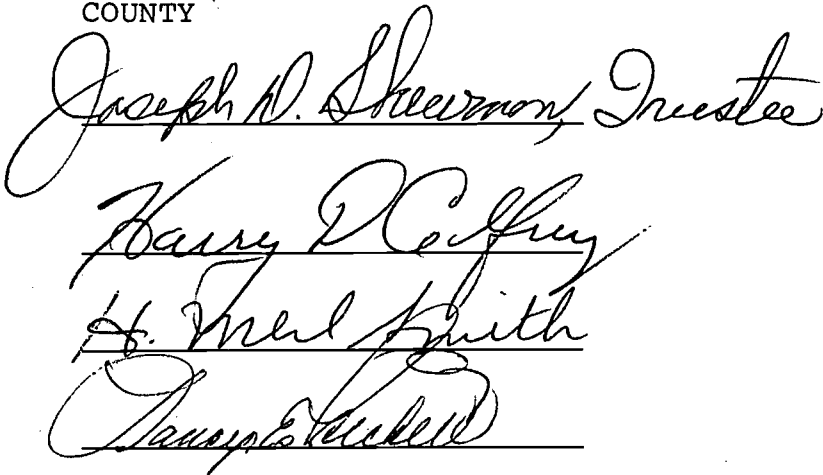 COUNTY
Joseph D. Sheurmon, Trustee
Harry D Godfrey
H. Merl Smith